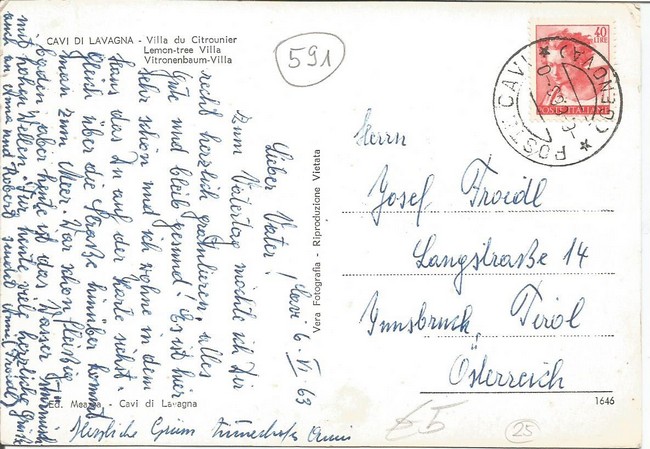 CAVI DI LAVAGNA - Villa du Citrounier
Lemon-tree Villa
Vitronenbaum-Villa
591
40
LIRE
POSTE ITALIANE
POSTE CAVI
(GENOVA)
Cavi 6. VI. 63
Lieber Vater!
Zum Vatertag möcht ich Dir
recht herzlich gratulieren, alles
Gute und bleib gesund! Es ist hier
sehr schön und ich wohne in dem
Haus das Du auf der Karte siehst.
Gleich über die Straße hinüber kommt
man zum Meer. War schon fleißig
baden, aber heute ist das Wasser stürmisch
mit hohen Wellen. Für heute viel herzliche Grüße
auch an Anna und Robert sendet
Herzliche Grüsse
Vera Fotografia - Riproduzione Vietata
Herrn
Josef Froidl
Langstraße 14
Innsbruck, Tirol
Österreich
Ed. Meazza - Cavi di Lavagna
1646
£5
25